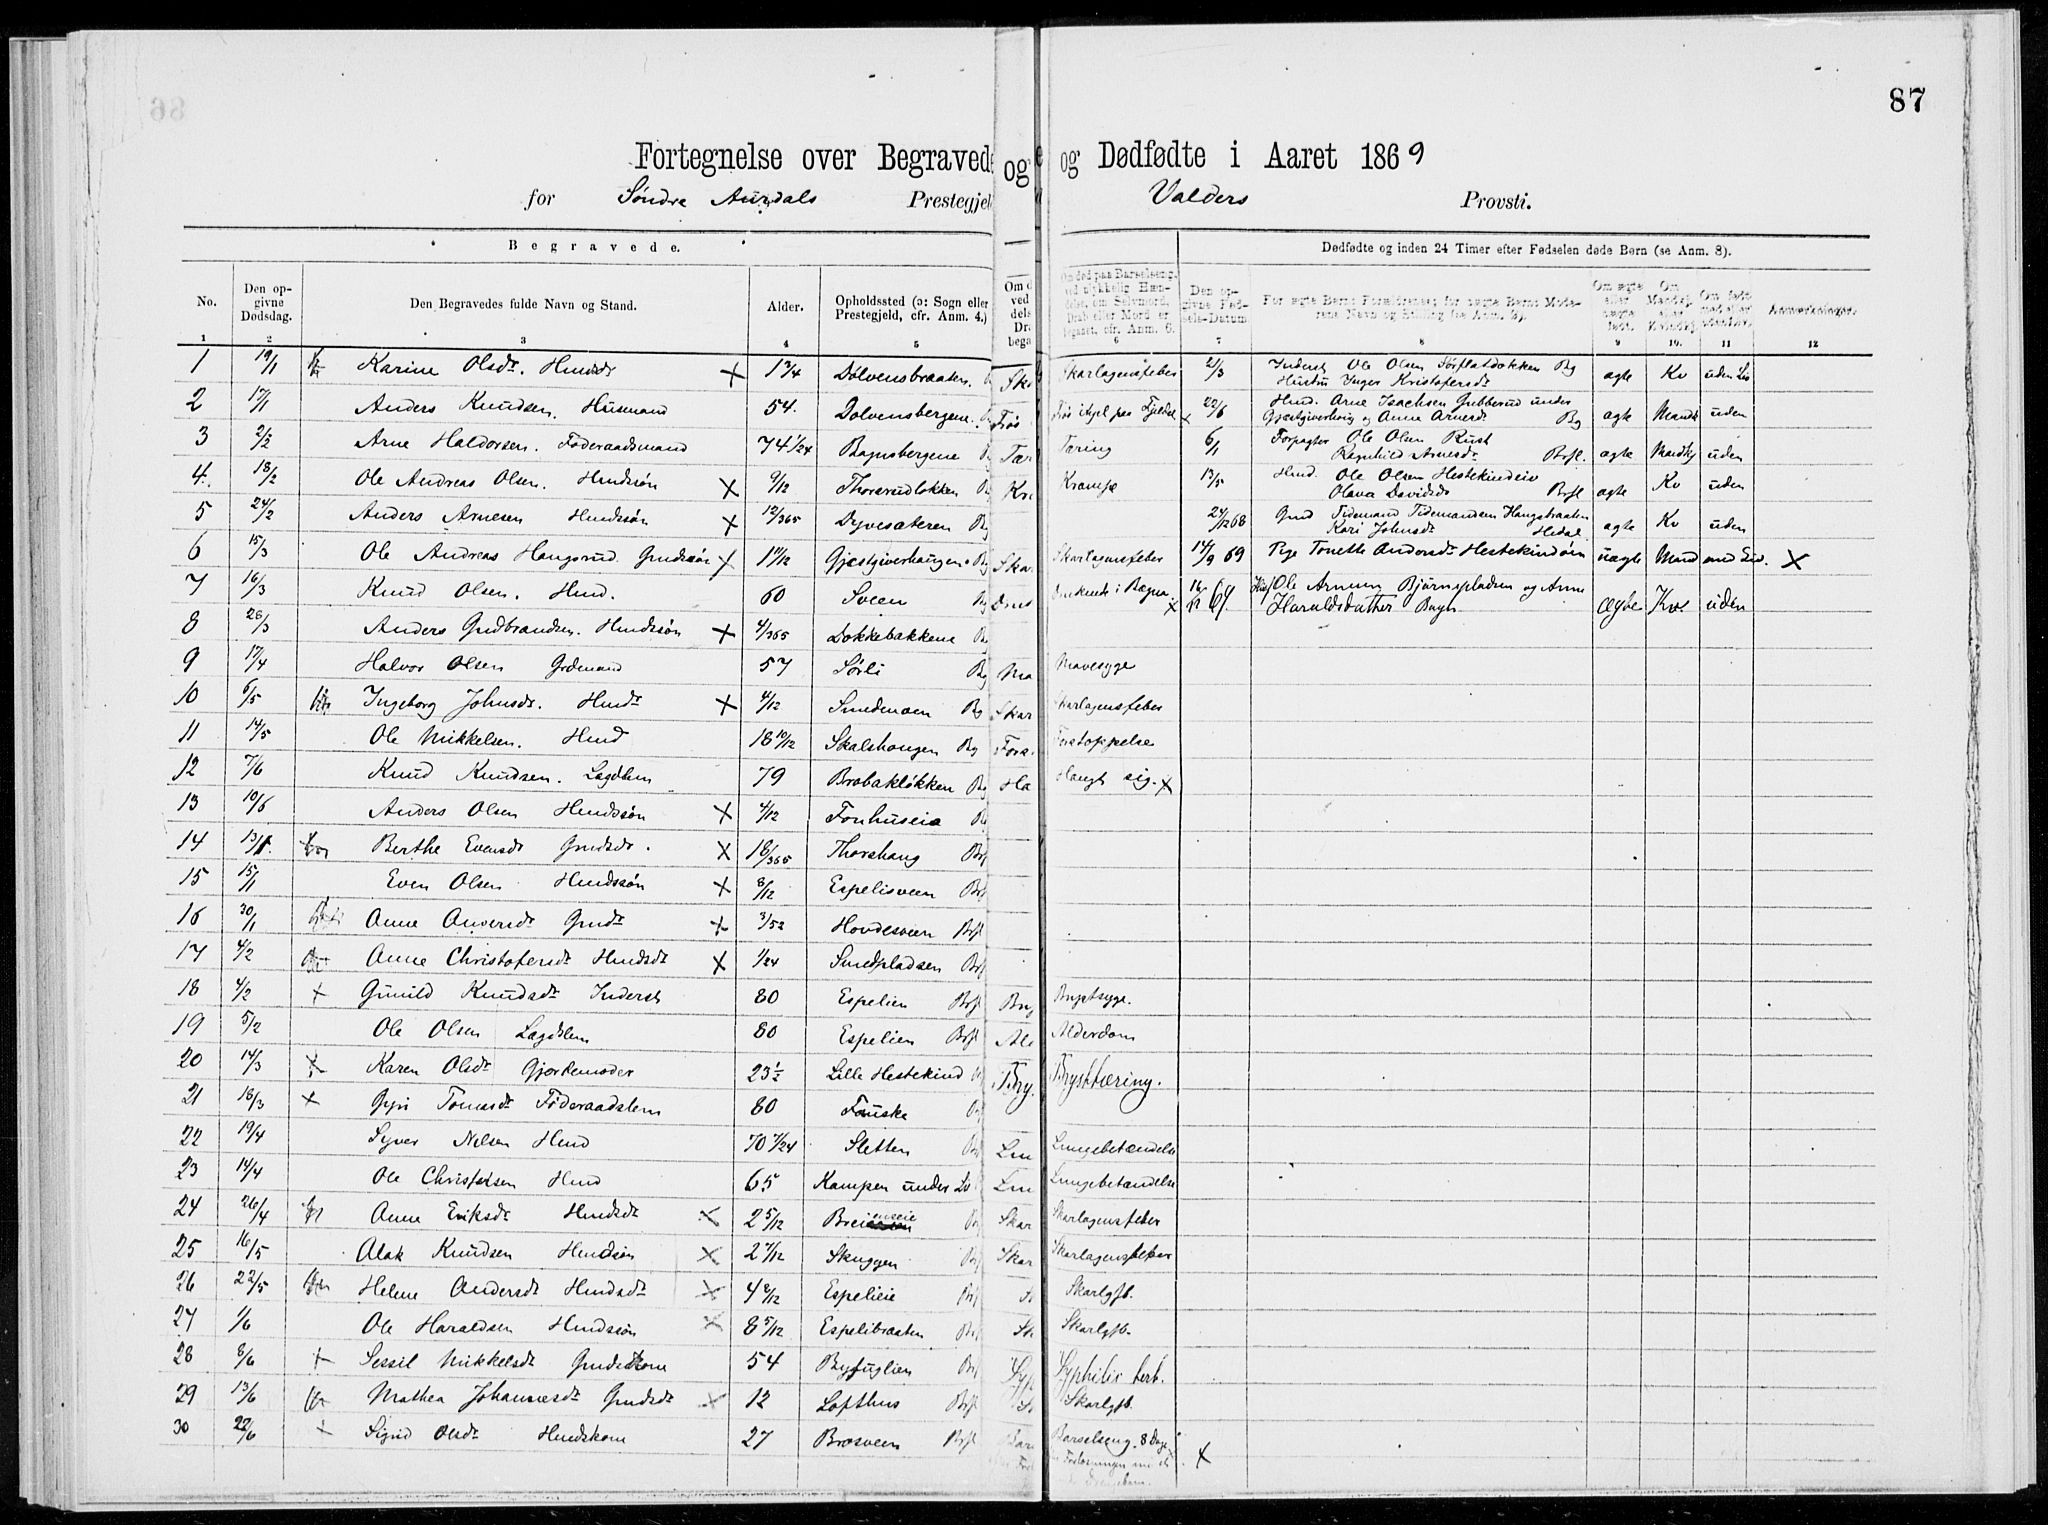 87
Fortegnelse over Begravede og Dødfødte i Aaret 1869
for Søndre Aurdals Prestegjeld Valders Provsti.
Begravede.
Dødfødte og inden 24 Timer efter Fødselen døde Børn (se Anm. 8).
No. Den opgivne Dødsdag. Den Begravedes fulde Navn og Stand. Alder. Opholdssted (ɔ: Sogn eller Prestegjeld, cfr. Anm. 4.) Om død paa Barselseng, ved ulykkelig Hændelse, om Selvmord, Drab eller Mord er begaaet, cfr. Anm. 6. Den opgivne Fødsels-Datum For ægte Børn: Forældrenes; for uægte Børn: Moderens Navn og Stilling (se Anm. 3). Om ægte eller uægte født. Om Mandkj. eller Kvindekj. Om født med eller uden Liv. Anmærkninger.
1 2 3 4 5 6 7 8 9 10. 11 12
1 19/1 Karine Olsdr. Hmdsdr × 1 3/4 Dølvensbraaten. Skarlagensfeber 2/3 Inderst Ole Olsen Sørflatdokken Bg
Hustru Inger Kristofersdr ægte Kv uden Liv
2 17/1 Anders Knudsen. Husmand 54. Dølvensbergene. Frøs ihjel paa Fjeldet × 22/6 Hmd. Arne Isachsen Gubberud under
Gjæstgiverhoug og Anne Arnesdr Bg ægte Mandk uden
3 2/2 Arne Haldorsen. Føderaadsmand 74 1/24 Bagnsbergene Tæring 6/1 Forpagter Ole Olsen Rust
Ragnhild Arnesdr Brfl. ægte Mandkj uden
4. 18/2 Ole Andreas Olsen. Hmdssøn × 9/12 Thorsrudløkken Krampe 13/5 Hmd. Ole Olsen Hestekindeie
Olava Davidsdr Brfl ægte Kv uden
5 24/2 Anders Arnesen Hmdssøn × 12/365 Dyvesæteren Bg 24/12 68 Gmd Tidemand Tidemandsen Haugsbraaten
Kari Johnsdr Hedal ægte Kv uden
6 15/3 Ole Andreas Haugsrud Gmdssøn × 1 11/12 Gjæstgiverhaugen Bg Skarlagensfeber 14/9 69 Pige Tonette Andersdr Hestekindeie uægte Mand med Liv. ×
7 16/3 Knud Olsen. Hmd. 60 Sveen Druknet i Bægna × 69. Ole Arnesen Bjørnspladsen og Anne
Haraldsdatter Bagn ægte Kv uden
8 28/3 Anders Gudbrandsen. Hmdssøn × 4/365 Dokkebakkene Bg
9 17/4 Halvor Olsen Grdmand 57 Sørli Bg Mavesyge
10 6/5 Ingeborg Johnsdr. Hmdr × 4/12 Smedmoen Bg Skarlagensfeber
11 14/5 Ole Mikkelsen. Hmd 18 10/12 Skalshougen Bg Forstoppelse
12 7/6 Knud Knudsen. Lægdslem 79 Brobakløkken Bg Hængt sig. ×
13 10/6 Anders Olsen Hmdssøn × 4/12 Fønhuseie
14 13/1. Berthe Evensdr Gmdsdr. × 18/365 Thorshaug Brfl
15 15/1 Even Olsen Hmdssøn × 8/12 Espelisveen Brfl
16 30/1 Anne Andersdr Gmdr × 3/52 Hovdesveen Brfl
17 4/2 Anne Christofersdr Hmdsdr × 1/24 Smedpladsen Brfl
18 4/2 × Gunild Knudsdr Inderst 80 Espelien Brfl Brystsyge.
19 5/2 Ole Olsen Lægdslem 80 Espelien Brfl Alderdom
20 14/3 × Karen Olsdr Gjordemoder 23 1/2 Lille Hestekind Brysttæring.
21 18/3 × Guri Tomasdr Føderaadslem 80 Fauske
22 19/4 Syver Nilsen Hmd 70 7/24 Sletten Lungebetændelse
23 14/4 Ole Christofersen Hmd 65 Kampen under Lungebetændelse
24 26/4 Anne Eriksdr Hmdsdr × 2 5/12 Skarlagensfeber
25 16/5 Alak Knudsen Hmdssøn × 2 7/12 Skuggen Skarlagensfeber
26 22/5 Helene Andersdr Hmdsdr × 4 2/12 Espelieie Brfl Skarlgfb.
27 1/6 Ole Haraldsen Hmdssøn × 8 5/12 Espelibraaten Brfl Skarlgfb.
28 8/6 × Sessil Mikkelsdr Gmdskone 54 Byfuglien Syphilis tert.
29 13/6 Mathea Johannesdr Gmdsdr × 12 Lofthus Brfl Skarlgfb.
30 22/6 × Sigrid Olsdr Hmdskone 27 Brosveen Brfl Barselseng. 8 Dage ×